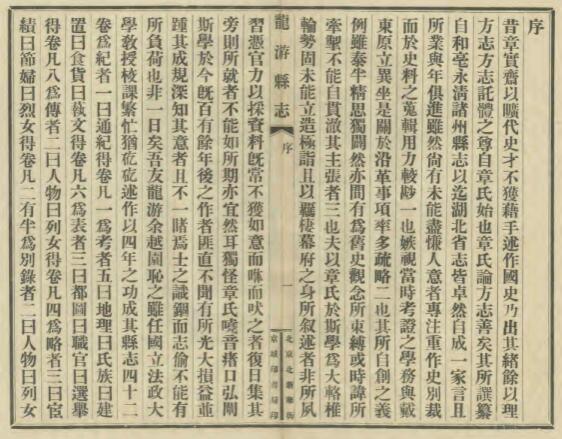 序
昔章實齋以曠代史才不獲藉手述作國史乃出其緒餘以理
方志方志託體之尊自章氏始也章氏論方志善矣其所譔纂
自和亳永清諸州縣志以迄湖北省志皆卓然自成一家言且
所業與年俱進雖然尚有未能盡慊人意者專注重作史別裁
而於史料之蒐輯用力較尠一也嫉視當時考證之學務與戴
東原立異坐是關於沿革事項率多疏略二也其所自創之義
例雖泰半精思獨闢然亦間有爲舊史觀念所束縛或時諱所
牽掣不能自貫澈其主張者三也夫以章氏於斯學爲大輅椎
輪勢固未能立造極詣且以羈棲幕府之身所叙述者非所夙
龍游縣志
序
一
北京北新華街
京城印書局印
習憑官力以採資料旣常不獲如意而咻而吠之者復日集其
旁則所就者不能如所期亦宜然耳獨怪章氏嘵音瘏口弘闡
斯學於今旣百有餘年後之作者匪直不聞有所光大損益並
踵其成規深知其意者且不一睹爲士之識錮而志偷不能有
所負荷也非一日矣吾友龍游余越園恥之雖任國立法政大
學敎授校課繁忙猶矻矻述作以四年之功成其縣志四十二
卷爲紀者一曰通紀得卷凡一爲考者五曰地理曰氏族曰建
置曰食貨曰藝文得卷凡六爲表者三曰都圖曰職官曰選舉
得卷凡八爲傳者二曰人物曰列女得卷凡四爲略者三曰宦
績曰節婦曰烈女得卷凡二有半爲別錄者二曰人物曰列女